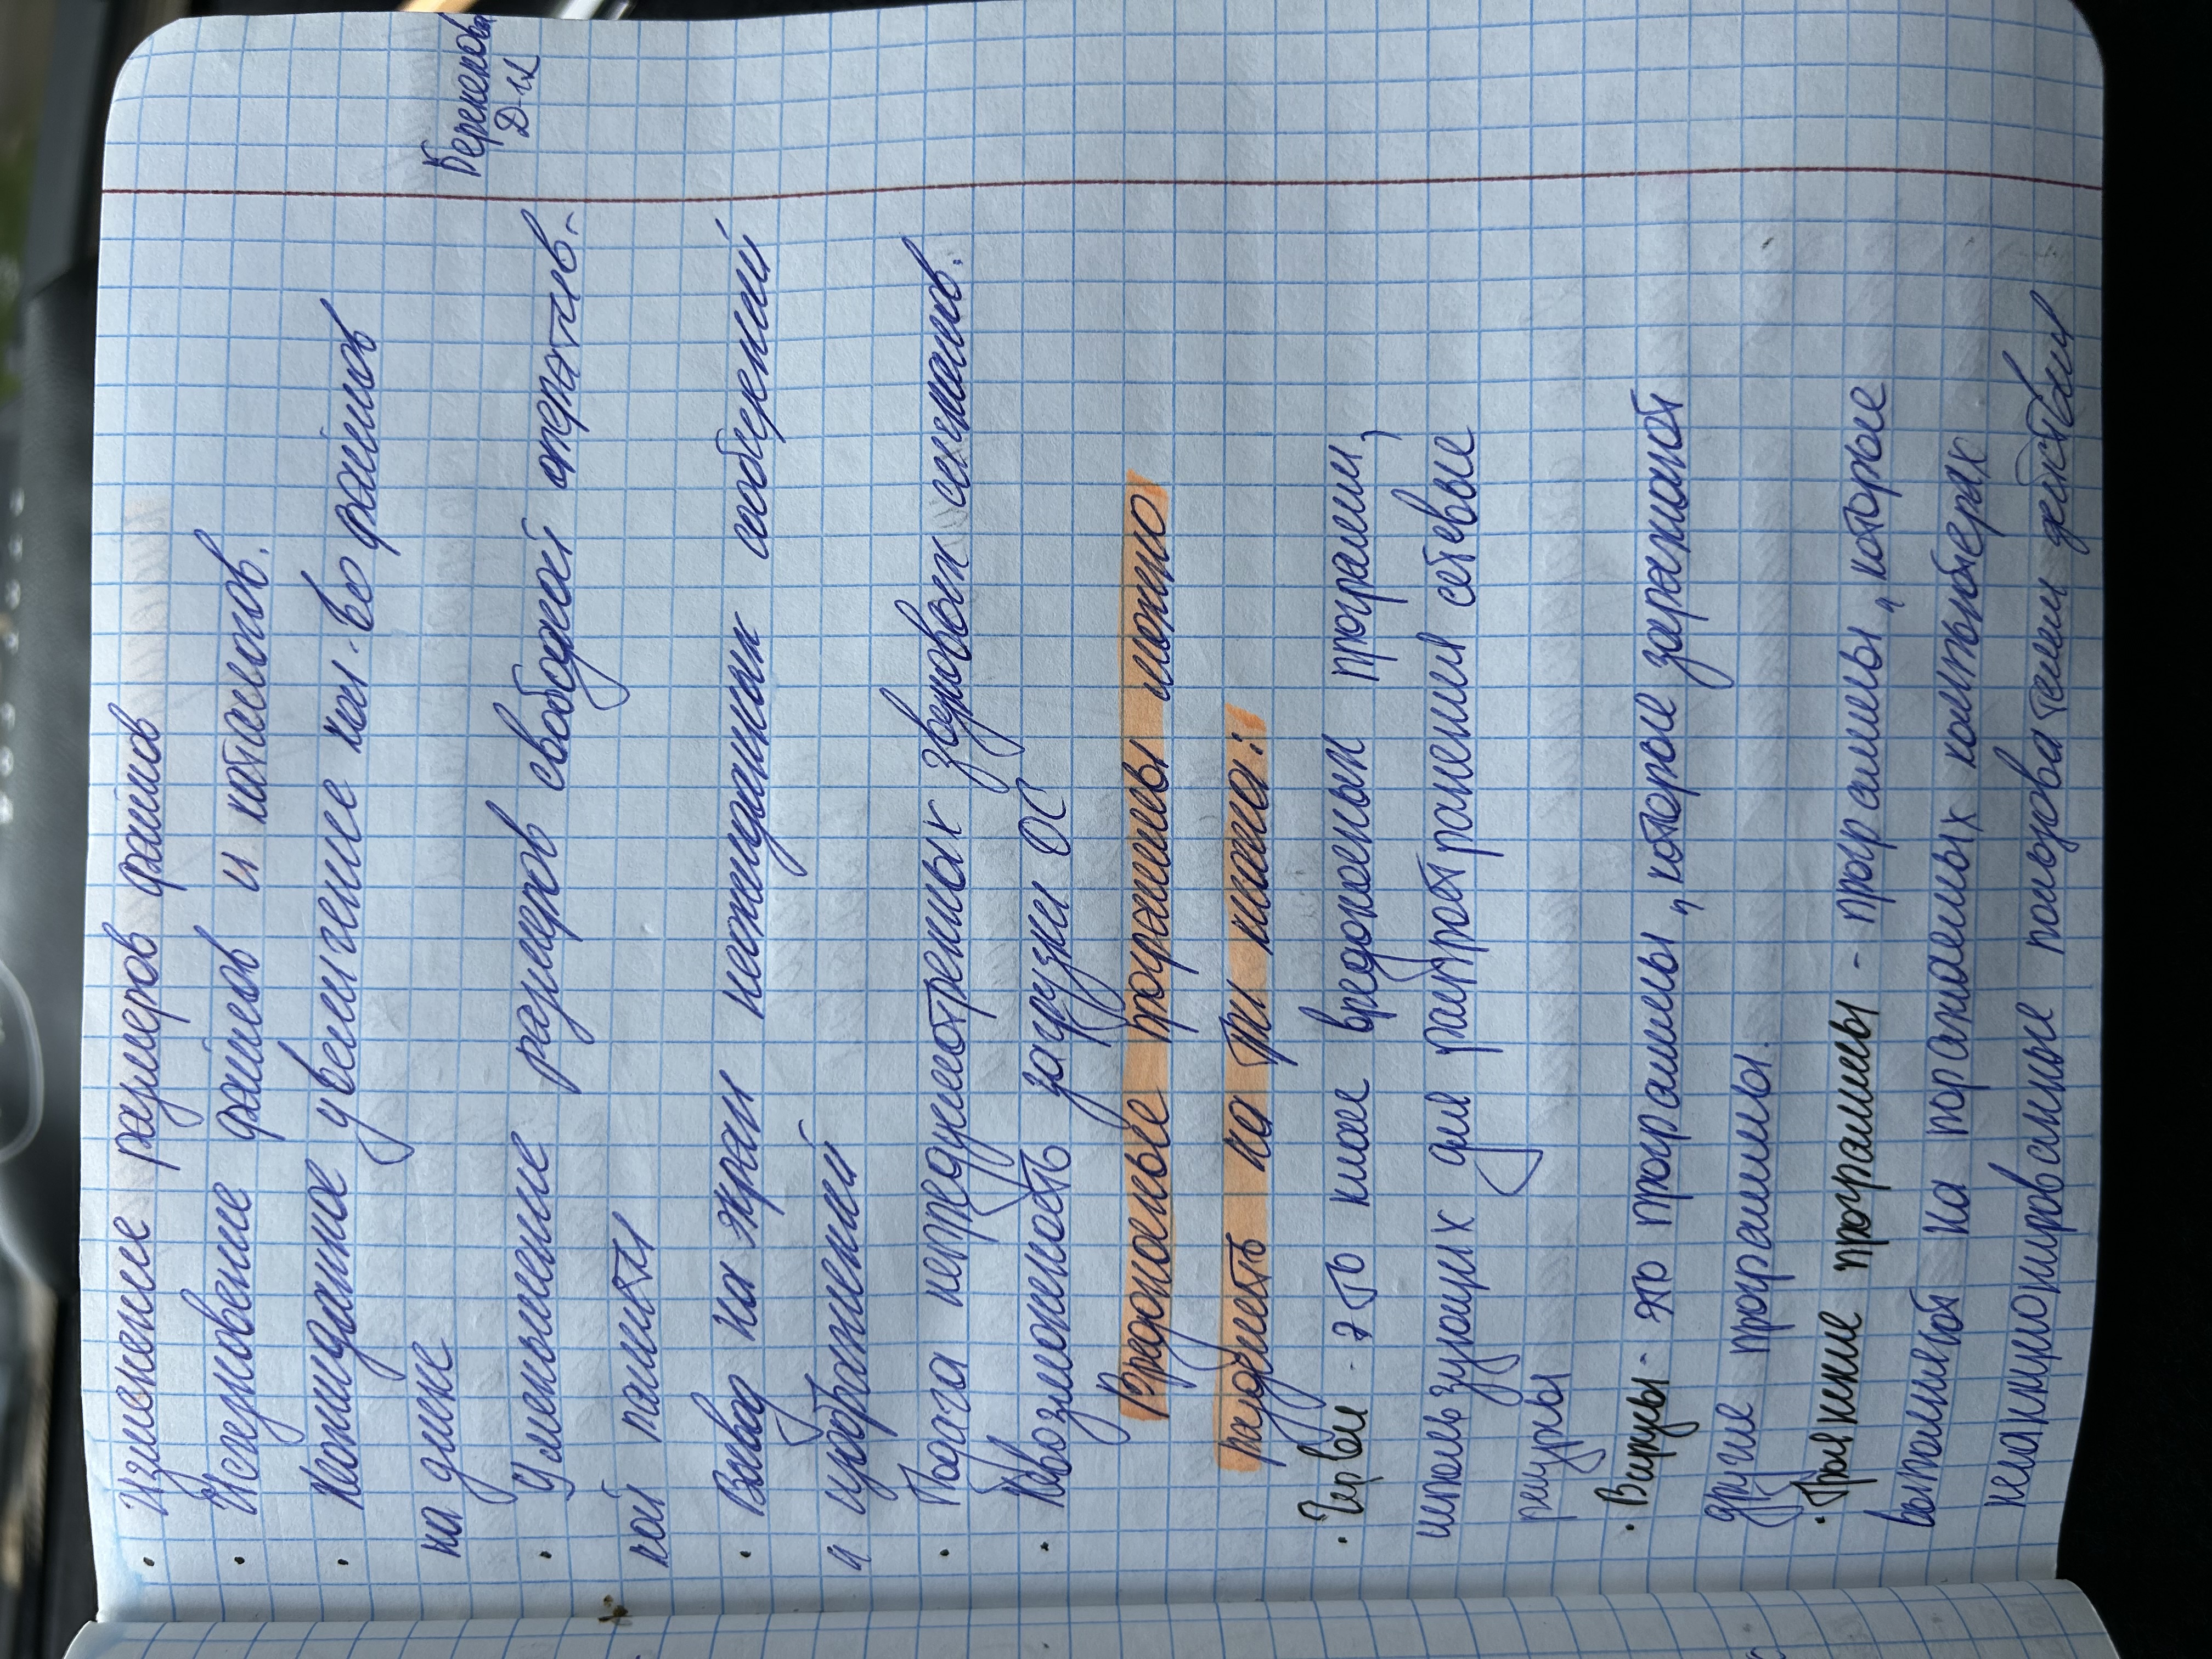 Беркенова
Д-н
• Изменение размеров файлов
• Исчезновение файлов и каталогов.
• Неожиданное увеличение кол-во файлов
на диске
• Уменьшение размеров свободной оператив-
ной памяти
• Вывод на экран неожиданных сообщений
и изображений
• Подача непредусмотренных звуковых сигналов.
• Невозможность загрузки ОС
Вредоносные программы можно
разделить на три класса:
• Черви - это класс вредоносных программ,
использующих для распространения сетевые
ресурсы
• Вирусы - это программы, которые заражают
другие программы.
• Троянские программы - программы, которые
выполняют на поражаемых компьютерах
несанкционированные пользователем действия